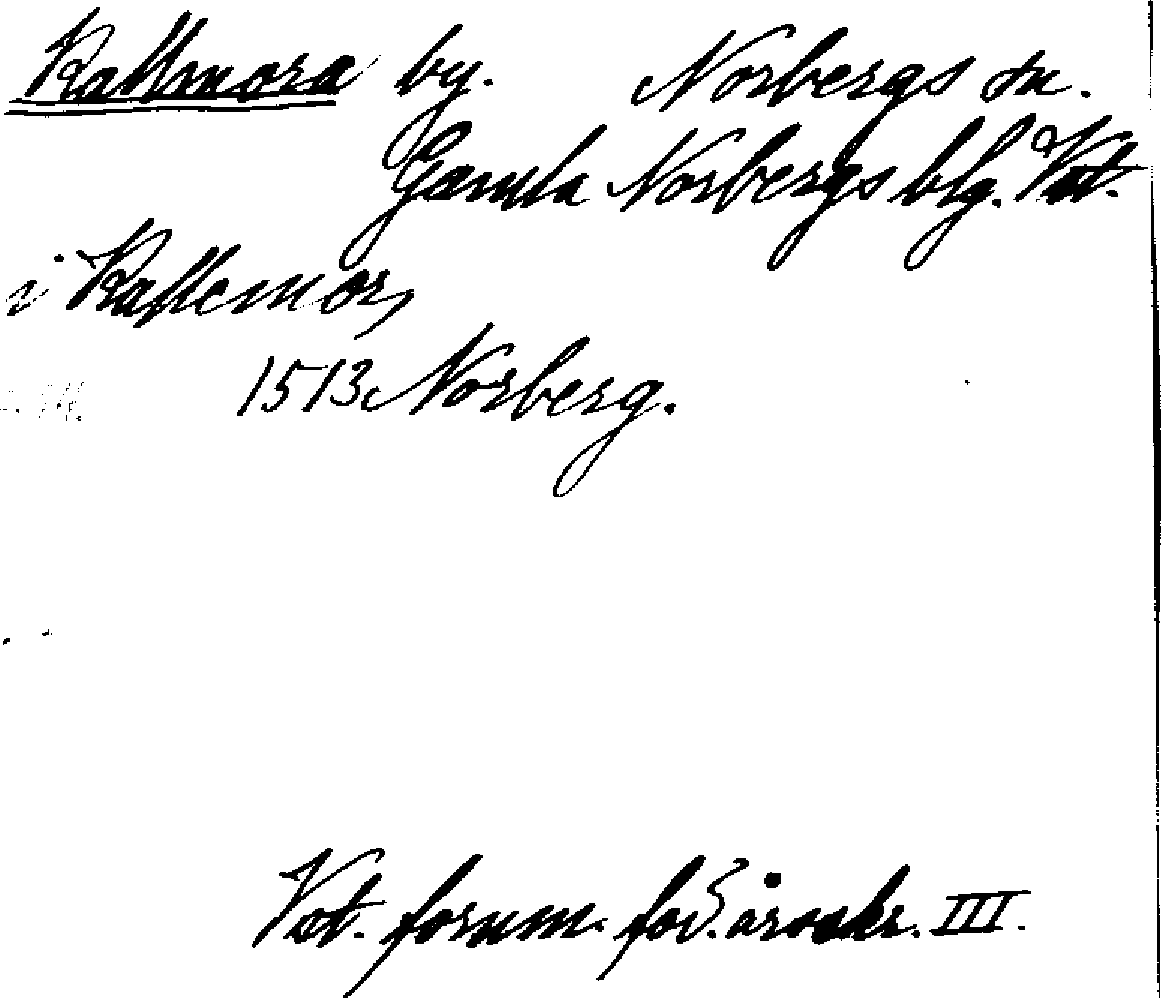 Kallmora by. Norbergs sn.
Gamla Norbergs blg. Vstm.
i Kallemor,
1513 Norberg.
Vst. fornm. för:s årsskr. III.